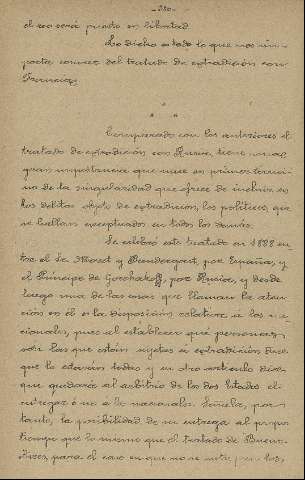 - 320 -
el reo será puesto en libertad.
Lo dicho es todo lo que nos im-
porta conocer del tratado de extradición con
Francia.
* *
Comparado con los anteriores el
tratado de extradición con Rusia, tiene una
gran importancia que nace en primer térmi-
no de la singularidad que ofrece de incluir en
los delitos objeto de extradición, los políticos, que
se hallan exceptuados en todos los demás.
Se celebró este tratado en 1888 en-
tre el Sr. Moret y por España, y
el Príncipe de Gorchakoff, por Rusia, y desde
luego una de las cosas que llaman la aten-
ción en él es la disposición relativa á los na-
cionales, pues al establecer qué personas
son las que están sujetas á extradición dice
que lo estarán todas y en otro artículo dice
que quedará al arbitrio de los dos Estados el
entregar ó no á los nacionales. Señala, por
tanto, la posibilidad de su entrega al propio
tiempo que lo mismo que el tratado de Buenos
Aires, para el caso en que no se entreguen los,